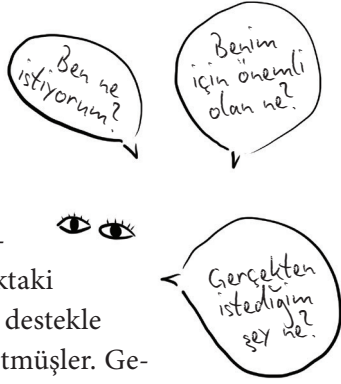 Ben ne
istiyorum?
Benim
için önemli
olan ne?
Gerçekten
istediğim
şey ne?
-
ktaki
destekle
tmüşler. Ge-